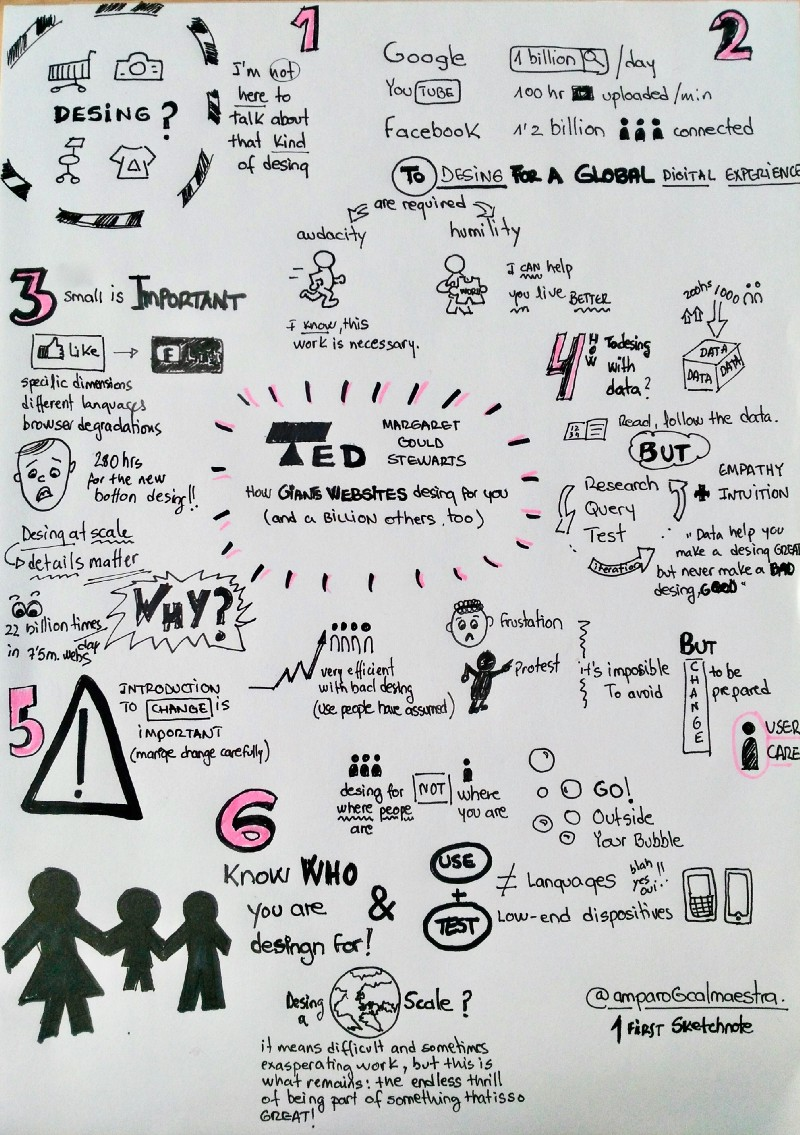 1
DESING?
I'm not
here to
talk about
that kind
of desing
2
Google 1 billion /day
YouTUBE 100 hr uploaded/min
Facebook 1'2 billion connected
To DESING FOR A GLOBAL DIGITAL EXPERIENCE
are required
audacity
humility
I know, this
work is necessary.
WORK
I CAN help
you live BETTER
3 small is IMPORTANT
Like → F
specific dimensions
different languages
browser degradations
280 hrs
for the new
botton desing!!
Desing at scale
details matter
22 billion times
day
in 7'5m. webs
WHY?
TED
MARGARET
GOULD
STEWARTS
How GIANS WEBSITES desing for you
(and a BILLION others, too)
4 HOW To desing
with
data?
200hs/1000
DATA
DATA DATA
12
34
Read, follow the data.
BUT
Research
Query
Test
iteration
+ EMPATHY
INTUITION
"Data help you
make a desing GREAT
but never make a BAD
desing, GOOD"
5
!
INTRODUCTION
TO CHANGE is
IMPORTANT
(manage change carefully)
very efficient
with bad desing
(use people have assumed)
Frustation
Protest
it's imposible
To avoid
BUT
CHANGE
to be
prepared
USER
CARE
6
Know WHO
you are
desingn for!
&
desing for NOT where
where peope you are
are
GO!
Outside
Your Bubble
USE
+
TEST
≠ Languages
blah!!
yes..
oui...
Low-end dispositives
Desing
a Scale?
it means difficult and sometimes
exasperating work, but this is
what remains: the endless thrill
of being part of something that is so
GREAT!
@amparoGcalmaestra.
1 FIRST Sketchnote